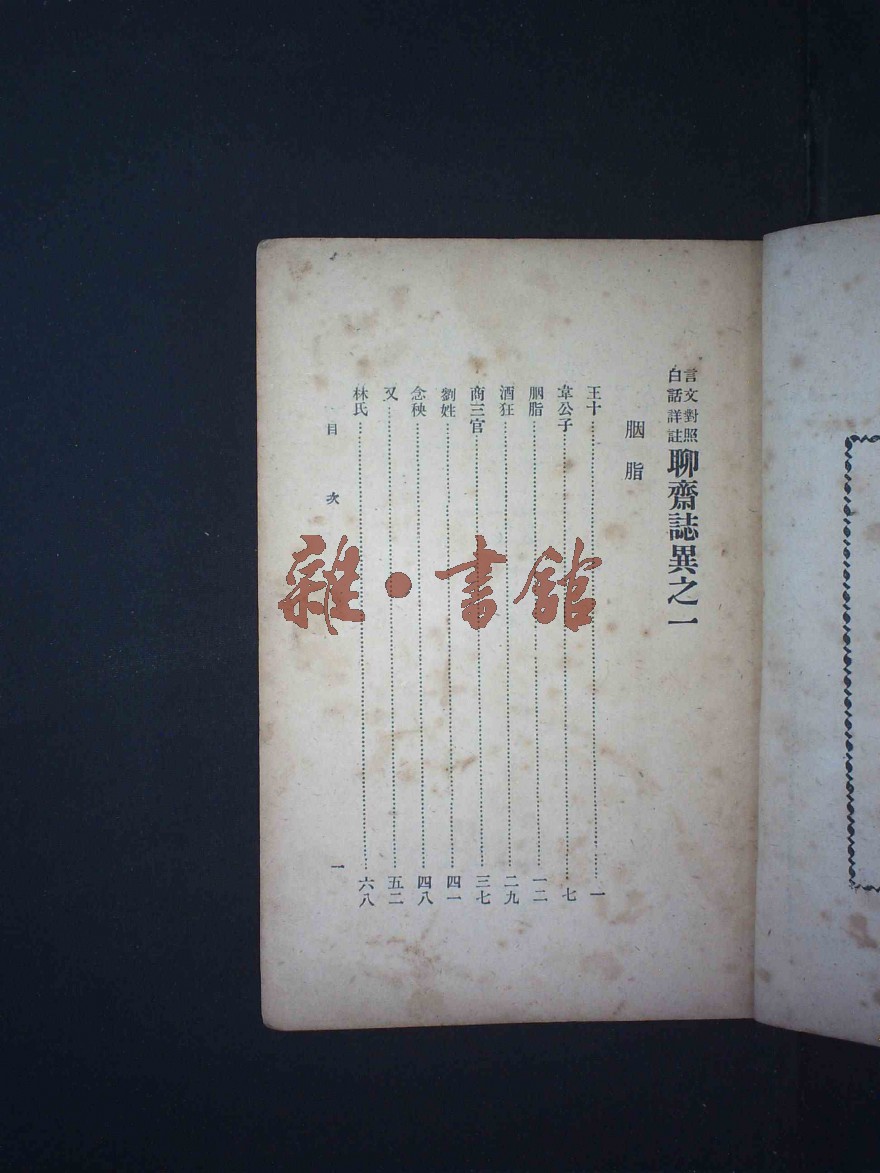 言文對照
白話詳註
聊齋誌異之一
胭脂
王十……一
韋公子……七
胭脂……一二
酒狂……二九
商三官……三七
劉姓……四一
念秧……四八
又……五二
林氏……六八
目次
一
雜·書館